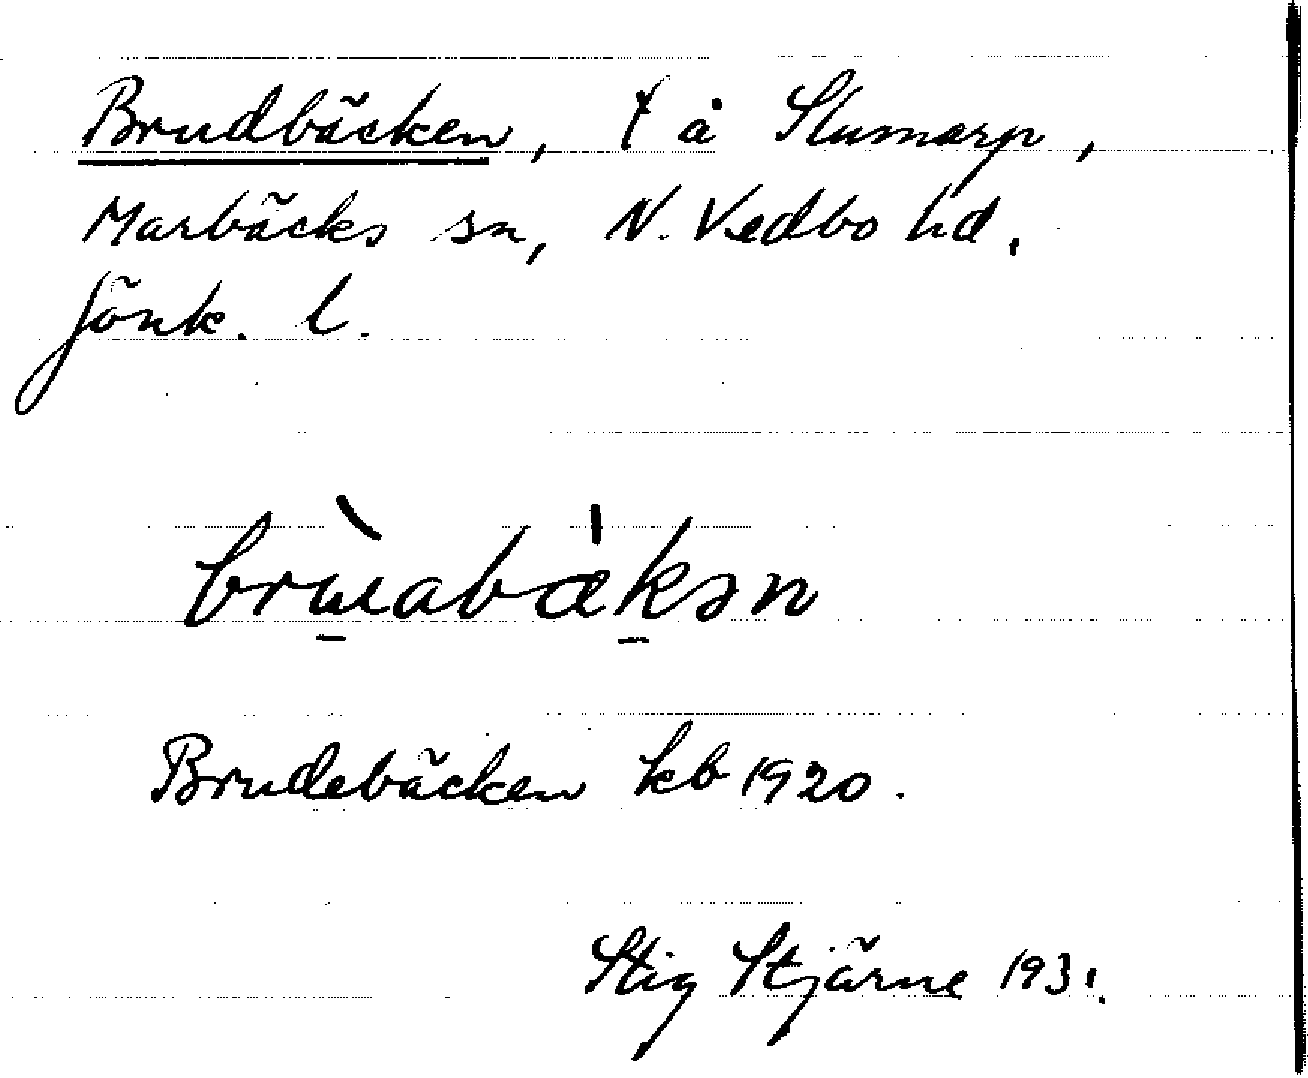 Brudbäcken, t å Slumarp,
Marbäcks sn, N. Vedbo hd.
Jönk. l.
brɯabækən
Brudebäcken kb 1920.
Stig Stjärne 1931.